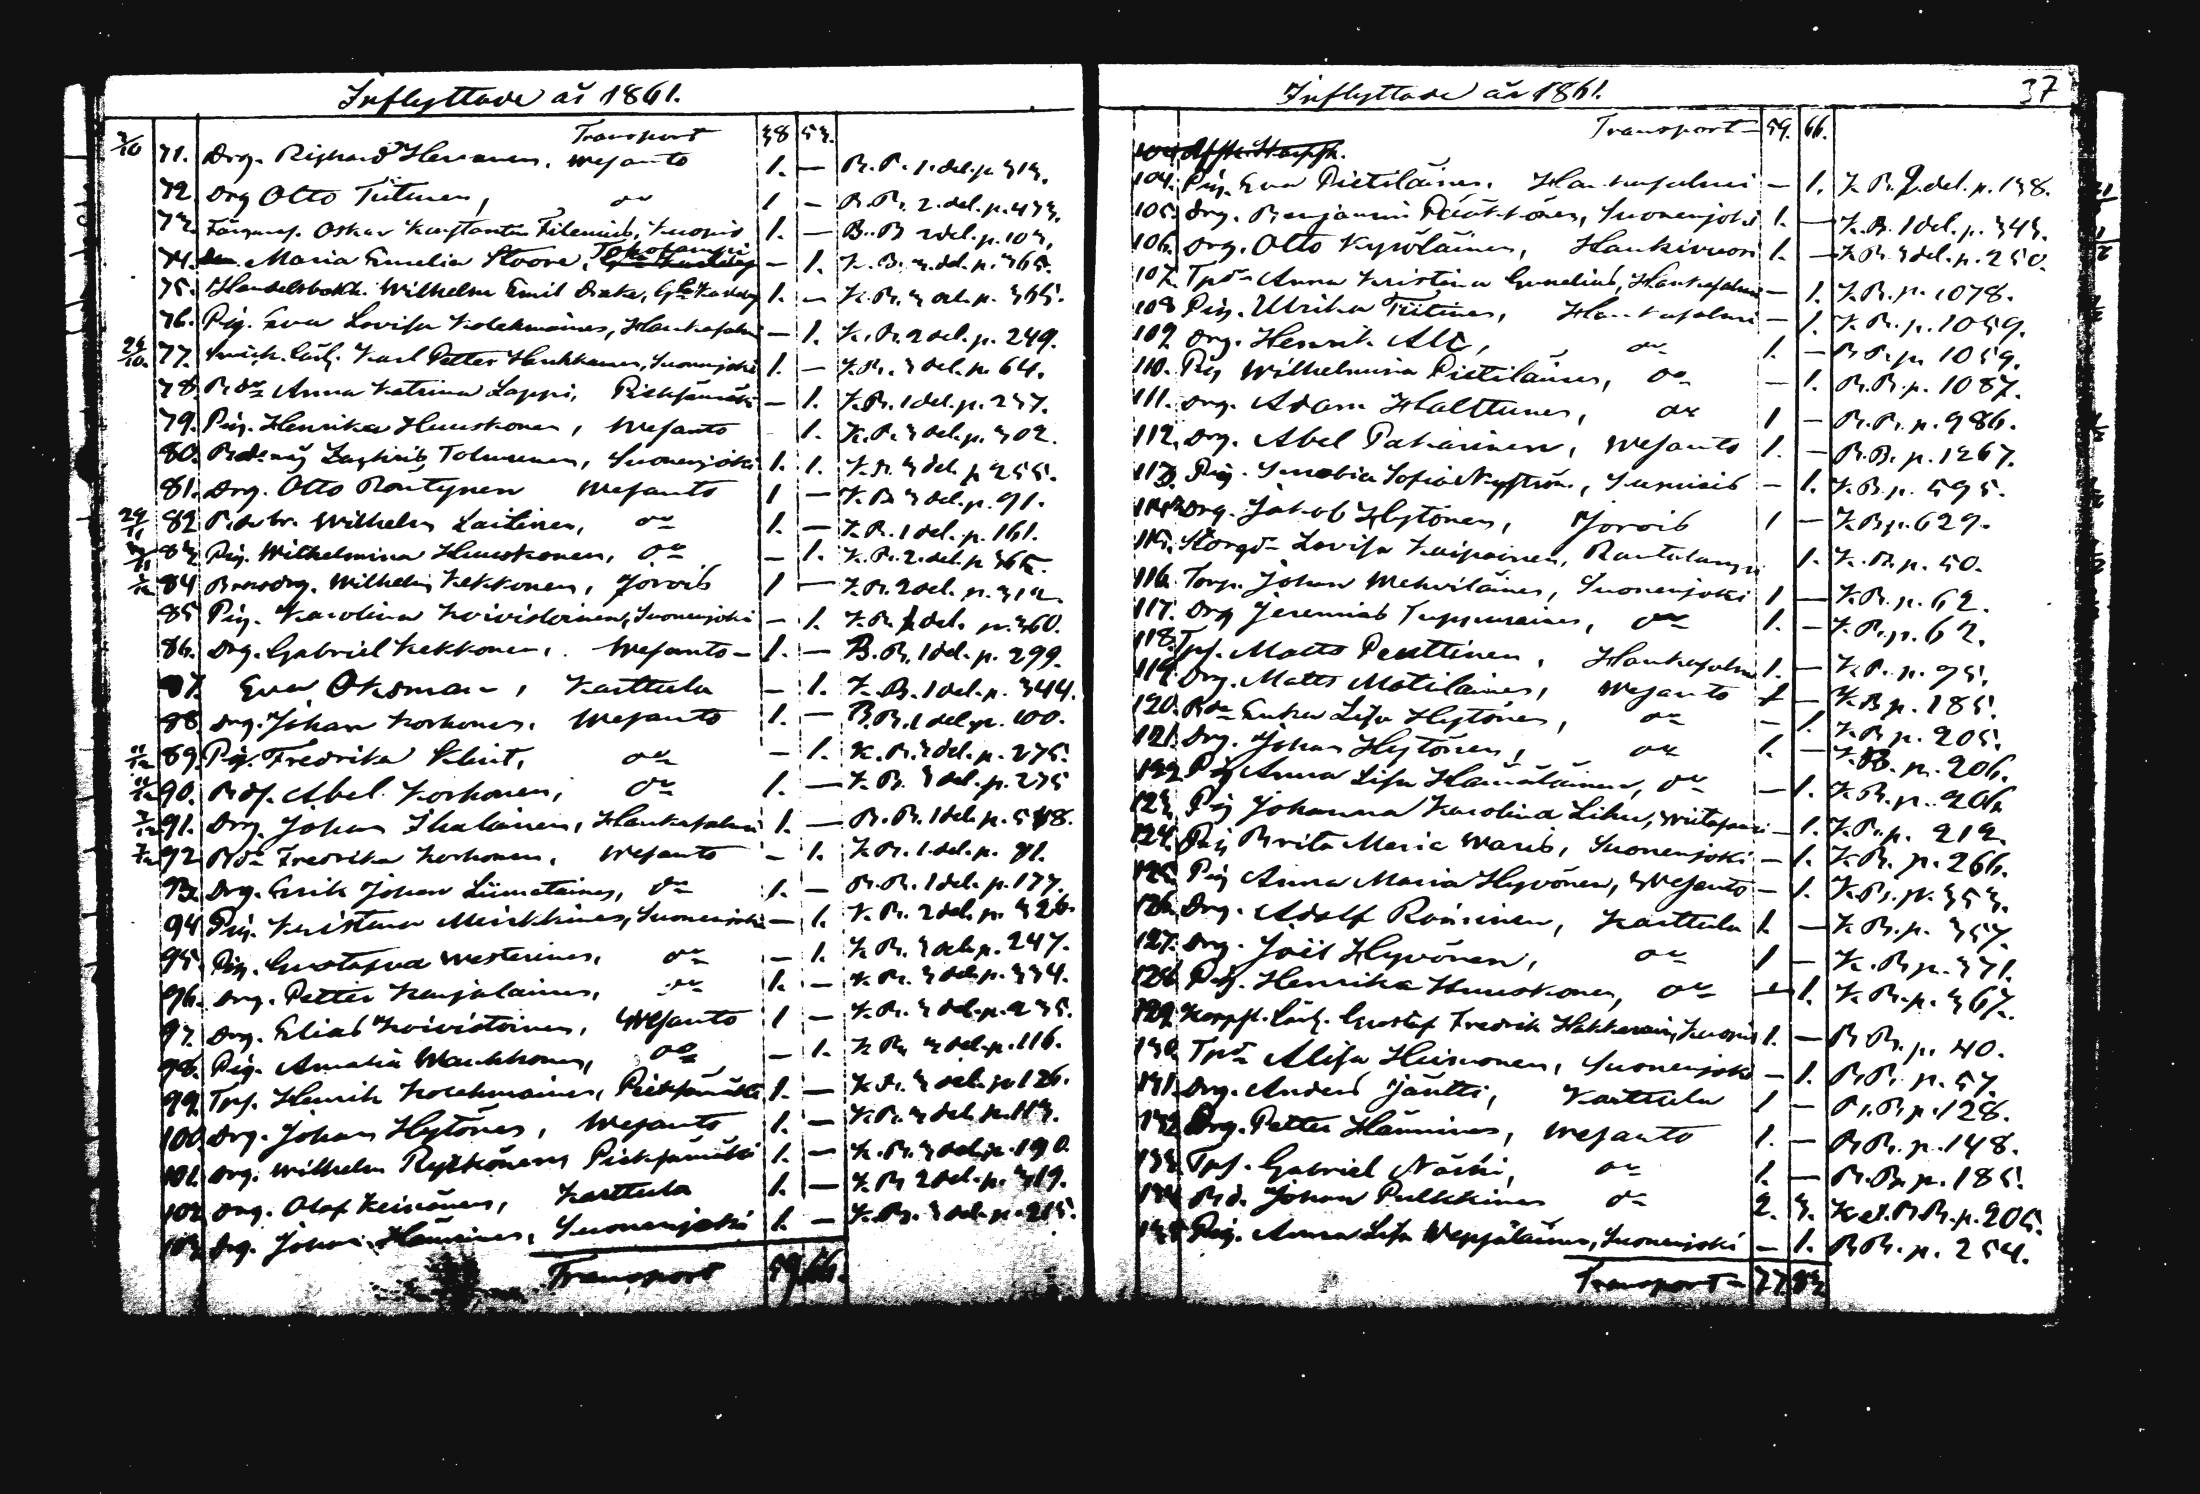 Inflyttade år 1861.
Transport 38 53.
2/10 71. Drg. Rickard Hersanen, Wesanto 1. — B.B. 1. del. p. 313.
72. Drg Otto Tiitinen, do 1 — B.B. 2. del. p. 473.
73. Oskar Konstantin Filenius, Kuopio 1. — B.B. 2 del. p. 103.
74. Maria Emelia Stoore, — 1. K.B. 3. del. p. 365.
75. Handelsbokh. Wilhelm Emil 1. — K.B. 3 del. p. 365.
76. Pig. Eva Lovisa Kolehmainen, Hankasalmi — 1. K.B. 2 del. p. 249.
77. Karl Petter Suonenjoki 1. — K.B. 3 del. p. 64.
78. Bdr Anna Katrina Lappi, Pieksämäki — 1. K.B. 1 del. p. 237.
79. Pig. Henrika Huuskonen, Wesanto 1. K.B. 3 del. p. 302.
80. Zachris Tolvanen, Suonenjoki 1. 1. K.B. 3 del. p 255.
81. Drg. Otto Röntynen Wesanto 1 — K.B. 3 del. p. 91.
82 Wilhelm Laitinen, do 1. — K.B. 1 del. p. 161.
83 Pig. Wilhelmina Huuskonen, do — 1. K.B. 2. del. p 365.
84 Wilhelm Kekkonen, Jorois 1 — K.B. 2 del. p. 312.
85 Pig. Karolina Koivistoinen, Suonenjoki — 1. K.B. del. p. 360.
86. Drg. Gabriel Kekkonen, Wesanto — 1. — B.B. 1 del. p. 299.
87. Eva Oksman, Karttula — 1. K.B. 1 del. p. 344.
88 Drg. Johan Korhonen, Wesanto 1. — B.B. 1 del p. 100.
11/12 89. Pig. Fredrika Klint, do — 1. K.B. 3 del. p. 275.
11/12 90. Abel Korhonen, do 1. — K.B. 3 del. p. 275
91. Drg. Johan Ihalainen, Hankasalmi 1. — B.B. 1 del. p. 548.
92 Bdr Fredrika Korhonen, Wesanto — 1. K.B. 1. del. p. 81.
93. Drg. Erik Johan Liimatainen, do 1. — B.B. 1 del. p. 177.
94 Pig. Kristina Suonenjoki — 1. K.B. 2 del. p. 326
95. Pig. Gustafva Westerinen, do — 1. K.B. 3 del. p. 247.
96. Drg. Petter Karjalainen, do 1. — K.B. 3 del. p. 334.
97. Drg. Elias Koivistoinen, Wesanto 1 — K.B. 3 del. p. 235.
98. Pig. Amalia Waukkonen, do — 1. K.B. 3 del. p. 116.
99. Tps. Henrik Kolehmainen, Pieksämäki 1. — K.B. 3 del. p. 126.
100. Drg. Johan Hytönen, Wesanto 1. — K.B. 3 del. p. 113.
101. Drg. Wilhelm Rytkönen, Pieksämäki 1. — K.B. 3 del. p. 190.
102. Drg. Olof Keinänen, Karttula 1. — K.B. 2 del. p. 319.
103. Drg. Johan Hänninen, Suonenjoki 1. — K.B. 3 del. p. 215.
Transport 59. 66.
Inflyttade år 1861. 37
Transport — 59. 66.
104. Pig. Eva Pietiläinen, Hankasalmi — 1. K.B. 2. del. p. 138.
105. Drg. Benjamin Pääkkönen, Suonenjoki 1. — K.B. 1 del. p. 343.
106. Drg. Otto Kyröläinen, Haukivuori 1. — K.B. 3 del. p. 250.
107. Anna Kristina Gunelius, Hankasalmi — 1. K.B. p. 1078.
108 Pig. Ulrika Tiitinen, Hankasalmi — 1. K.B. p. 1059.
109. Drg. Henrik Alt, do 1. — B.B. p. 1059.
110. Pig Wilhelmina Pietiläinen, do — 1. B.B. p. 1087.
111. Drg. Adam Halttunen, do 1 — B.B. p. 986.
112. Drg. Abel Pakarinen, Wesanto 1. — B.B. p. 1267.
113. Pig. Sofia Nyström, — 1. K.B. p. 595.
114. Drg. Jakob Hytönen, Jorois 1 — K.B. p. 629.
115. Lovisa Kaipainen, Rautalampi 1. K.B. p. 50.
116. Torp. Johan Mehviläinen, Suonenjoki 1 — K.B. p. 62.
117. Drg Jeremias Tuppurainen, do 1. — K.B. p. 62.
118. Tps. Matts Penttinen, Hankasalmi 1. — K.B. p. 95.
119. Drg. Matts Matilainen, Wesanto 1 — K.B. p. 185.
120. Bdr Enka Lisa Hytönen, do — 1. K.B. p. 205.
121. Drg. Johan Hytönen, do 1. — K.B. p. 206.
122. Pig Anna Lisa Hämäläinen, do — 1. K.B. p. 206
123. Pig Johanna Karolina Wiitasaari — 1. K.B. p. 212.
124. Pig Brita Maria Waris, Suonenjoki — 1. K.B. p. 266.
125. Pig Anna Maria Hyvönen, Wesanto — 1. K.B. p. 353.
126. Drg. Adolf Karttula 1. — K.B. p. 357.
127. Drg. Joël Hyvönen, do 1 — K.B. p. 371.
128. Pig. Henrika Huuskonen, do — 1. K.B. p. 367.
129. Gustaf Fredrik Hakkarain, Kuopio 1. — B.B. p. 40.
130. Alisa Heiskonen, Suonenjoki — 1. B.B. p. 57.
131. Drg. Anders Jäntti, Karttula 1 — B.B. p. 128.
132 Drg. Petter Hänninen, Wesanto 1. — B.B. p. 148.
133. Tps. Gabriel Närhi, do 1. — B.B. p. 185.
134. Bd. Johan Pulkkinen do 2. 3. K et. B.B. p. 205.
135. Pig. Anna Lisa Wepsäläinen, Suonenjoki — 1. B.B. p. 254.
Transport — 77. 83